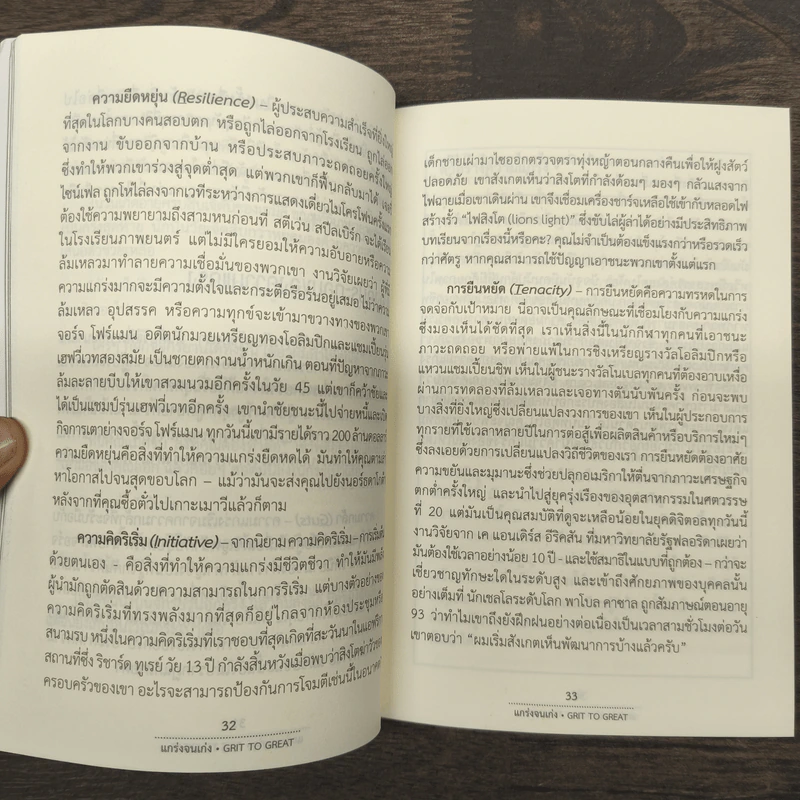 ความยืดหยุ่น (Resilience) – ผู้ประสบความสำเร็จที่ยิ่งใหญ่
ที่สุดในโลกบางคนสอบตก หรือถูกไล่ออกจากโรงเรียน ถูกไล่ออก
จากงาน ขับออกจากบ้าน หรือประสบภาวะถดถอยครั้งใหญ่
ซึ่งทำให้พวกเขาร่วงสู่จุดต่ำสุด แต่พวกเขาก็ฟื้นกลับมาได้ เจอร์รี่
ไซน์เฟล ถูกโห่ไล่ลงจากเวทีระหว่างการแสดงเดี่ยวไมโครโฟนครั้งแรก
ต้องใช้ความพยายามถึงสามหนก่อนที่ สตีเว่น สปีลเบิร์ก จะได้เรียน
ในโรงเรียนภาพยนตร์ แต่ไม่มีใครยอมให้ความอับอายหรือความ
ล้มเหลวมาทำลายความเชื่อมั่นของพวกเขา งานวิจัยเผยว่า ผู้ที่มี
ความแกร่งมากจะมีความตั้งใจและกระตือรือร้นอยู่เสมอ ไม่ว่าความ
ล้มเหลว อุปสรรค หรือความทุกข์จะเข้ามาขวางทางของพวกเขา
จอร์จ โฟร์แมน อดีตนักมวยเหรียญทองโอลิมปิกและแชมเปี้ยนรุ่น
เฮฟวี่เวทสองสมัย เป็นชายตกงานน้ำหนักเกิน ตอนที่ปัญหาจากภาวะ
ล้มละลายบีบให้เขาสวมนวมอีกครั้งในวัย 45 แต่เขาก็คว้าชัยและ
ได้เป็นแชมป์รุ่นเฮฟวี่เวทอีกครั้ง เขานำชัยชนะนี้ไปจ่ายหนี้และเปิด
กิจการเตาย่างจอร์จ โฟร์แมน ทุกวันนี้เขามีรายได้ราว 200 ล้านดอลลาร์
ความยืดหยุ่นคือสิ่งที่ทำให้ความแกร่งยืดหดได้ มันทำให้คุณตามหา
หาโอกาสไปจนสุดขอบโลก – แม้ว่ามันจะส่งคุณไปยังนอร์ธดาโกต้า
หลังจากที่คุณซื้อตั๋วไปเกาะเมาวีแล้วก็ตาม
ความคิดริเริ่ม (Initiative) – จากนิยาม ความคิดริเริ่ม – การเริ่มต้น
ด้วยตนเอง - คือสิ่งที่ทำให้ความแกร่งมีชีวิตชีวา ทำให้มันมีพลัง
ผู้นำมักถูกตัดสินด้วยความสามารถในการริเริ่ม แต่บางตัวอย่างของ
ความคิดริเริ่มที่ทรงพลังมากที่สุดก็อยู่ไกลจากห้องประชุมหรือ
สนามรบ หนึ่งในความคิดริเริ่มที่เราชอบที่สุดเกิดที่สะวันนาในแอฟริกา
สถานที่ซึ่ง ริชาร์ด ทูเรย์ วัย 13 ปี กำลังสิ้นหวังเมื่อพบว่าสิงโตฆ่าวัวของ
ครอบครัวของเขา อะไรจะสามารถป้องกันการโจมตีเช่นนี้ในอนาคต
32
แกร่งจนเก่ง • GRIT TO GREAT
เด็กชายเผ่ามาไซออกตรวจตราทุ่งหญ้าตอนกลางคืนเพื่อให้ฝูงสัตว์
ปลอดภัย เขาสังเกตเห็นว่าสิงโตที่กำลังด้อมๆ มองๆ กลัวแสงจาก
ไฟฉายเมื่อเขาเดินผ่าน เขาจึงเชื่อมเครื่องชาร์จเหลือใช้เข้ากับหลอดไฟ
สร้างรั้ว “ไฟสิงโต (lions light)” ซึ่งขับไล่ผู้ล่าได้อย่างมีประสิทธิภาพ
บทเรียนจากเรื่องนี้หรือคะ? คุณไม่จำเป็นต้องแข็งแรงกว่าหรือรวดเร็ว
กว่าศัตรู หากคุณสามารถใช้ปัญญาเอาชนะพวกเขาตั้งแต่แรก
การยืนหยัด (Tenacity) – การยืนหยัดคือความทรหดในการ
จดจ่อกับเป้าหมาย นี่อาจเป็นคุณลักษณะที่เชื่อมโยงกับความแกร่ง
ซึ่งมองเห็นได้ชัดที่สุด เราเห็นสิ่งนี้ในนักกีฬาทุกคนที่เอาชนะ
ภาวะถดถอย หรือพ่ายแพ้ในการชิงเหรียญรางวัลโอลิมปิกหรือ
แหวนแชมเปี้ยนชิพ เห็นในผู้ชนะรางวัลโนเบลทุกคนที่ต้องอาบเหงื่อ
ผ่านการทดลองที่ล้มเหลวและเจอทางตันนับพันครั้ง ก่อนจะพบ
บางสิ่งที่ยิ่งใหญ่ซึ่งเปลี่ยนแปลงวงการของเขา เห็นในผู้ประกอบการ
ทุกรายที่ใช้เวลาหลายปีในการต่อสู้เพื่อผลิตสินค้าหรือบริการใหม่ๆ
ซึ่งลงเอยด้วยการเปลี่ยนแปลงวิถีชีวิตของเรา การยืนหยัดต้องอาศัย
ความขยันและมุมานะซึ่งช่วยปลุกอเมริกาให้ตื่นจากภาวะเศรษฐกิจ
ตกต่ำครั้งใหญ่ และนำไปสู่ยุครุ่งเรืองของอุตสาหกรรมในศตวรรษ
ที่ 20 แต่มันเป็นคุณสมบัติที่ดูจะเหลือน้อยในยุคดิจิตอลทุกวันนี้
งานวิจัยจาก เค แอนเดิร์ส อีริคสัน ที่มหาวิทยาลัยรัฐฟลอริดาเผยว่า
มันต้องใช้เวลาอย่างน้อย 10 ปี - และใช้สมาธิในแบบที่ถูกต้อง – กว่าจะ
เชี่ยวชาญทักษะใดในระดับสูง และเข้าถึงศักยภาพของบุคคลนั้น
อย่างเต็มที่ นักเชลโลระดับโลก พาโบล คาซาล ถูกสัมภาษณ์ตอนอายุ
93 ว่าทำไมเขาถึงยังฝึกฝนอย่างต่อเนื่องเป็นเวลาสามชั่วโมงต่อวัน
เขาตอบว่า “ผมเริ่มสังเกตเห็นพัฒนาการบ้างแล้วครับ”
33
แกร่งจนเก่ง • GRIT TO GREAT